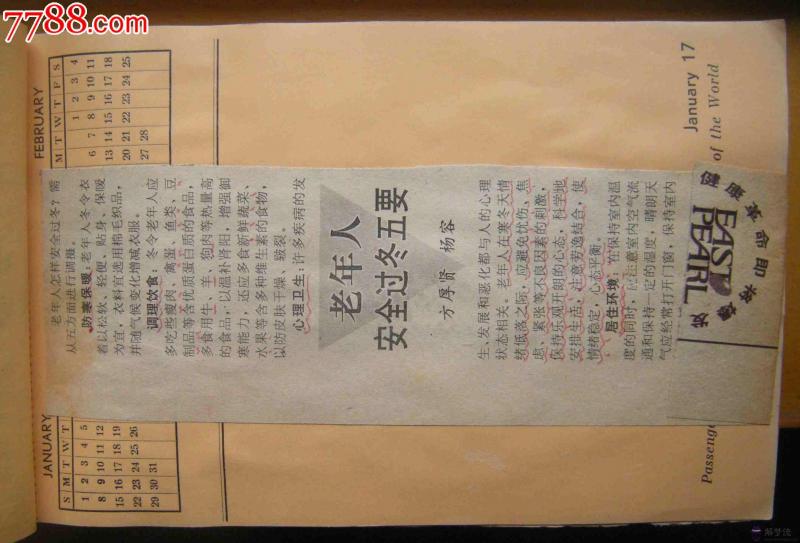 7788.com
JANUARY
S M T W T
1 2 3 4 5
8 9 10 11 12
15 16 17 18 19
22 23 24 25 26
29 30 31
FEBRUARY
M T W T F S
1 2 3 4
6 7 8 9 10 11
13 14 15 16 17 18
20 21 22 23 24 25
27 28
老年人怎样安全过冬?需
从五方面进行调摄。
防寒保暖:老年人冬令衣
着以松软、轻便、贴身、保暖
为宜,衣料宜选用棉毛织品,
并随气候变化增减衣服。
调理饮食:冬令老年人应
多吃些瘦肉、禽蛋、鱼类、豆
制品等含优质蛋白质的食品,
多食用牛、羊、狗肉等热量高
的食品,以温补 阳,增强御
寒能力,还应多食新鲜蔬菜、
水果等含多种维生素的食物,
以防皮肤干燥、皲裂。
心理卫生:许多疾病的发
老年人
安全过冬五要
方厚贤 杨容
生、发展和恶化都与人的心理
状态相关。老年人在寒冬天情
绪低落之际,应避免忧伤、焦
虑、紧张等不良因素的刺激,
保持乐观开朗的心态,科学地
安排生活,注意劳逸结合,使
情绪稳定,心态平衡。
居住环境:在保持室内温
度的同时,应注意室内空气流
通和保持一定的湿度,晴朗天
气应经常打开门窗,保持室内
January 17
of the World
Passenge
EAST
PEARL